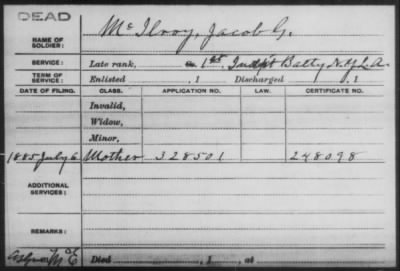 DEAD
NAME OF SOLDIER: McIlroy, Jacob G.
SERVICE: Late rank, 1st Indpt Batty N.Y.L.A.
TERM OF SERVICE: Enlisted , 1 Discharged , 1
DATE OF FILING. CLASS. APPLICATION NO. LAW. CERTIFICATE NO.
Invalid,
Widow,
Minor,
1885 July 6 Mother 328501 248098
ADDITIONAL SERVICES:
REMARKS:
Died , 1 , at